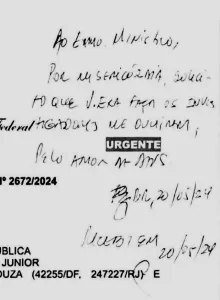 Ao Exmo. Ministro,
Por misericórdia, solici-
to que V.Exa faça os inves
Federal
tigadores me ouvirem,
URGENTE
Pelo amor de Deus
Nº 2672/2024
BR, 20/05/24
Recebi em
20/05/24
PÚBLICA
JUNIOR
OUZA (42255/DF, 247227/RJ) E